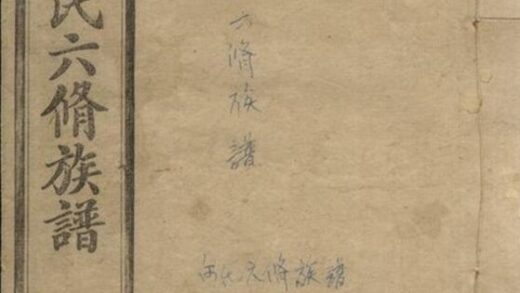 氏六脩族譜
六脩族譜
氏六脩族譜